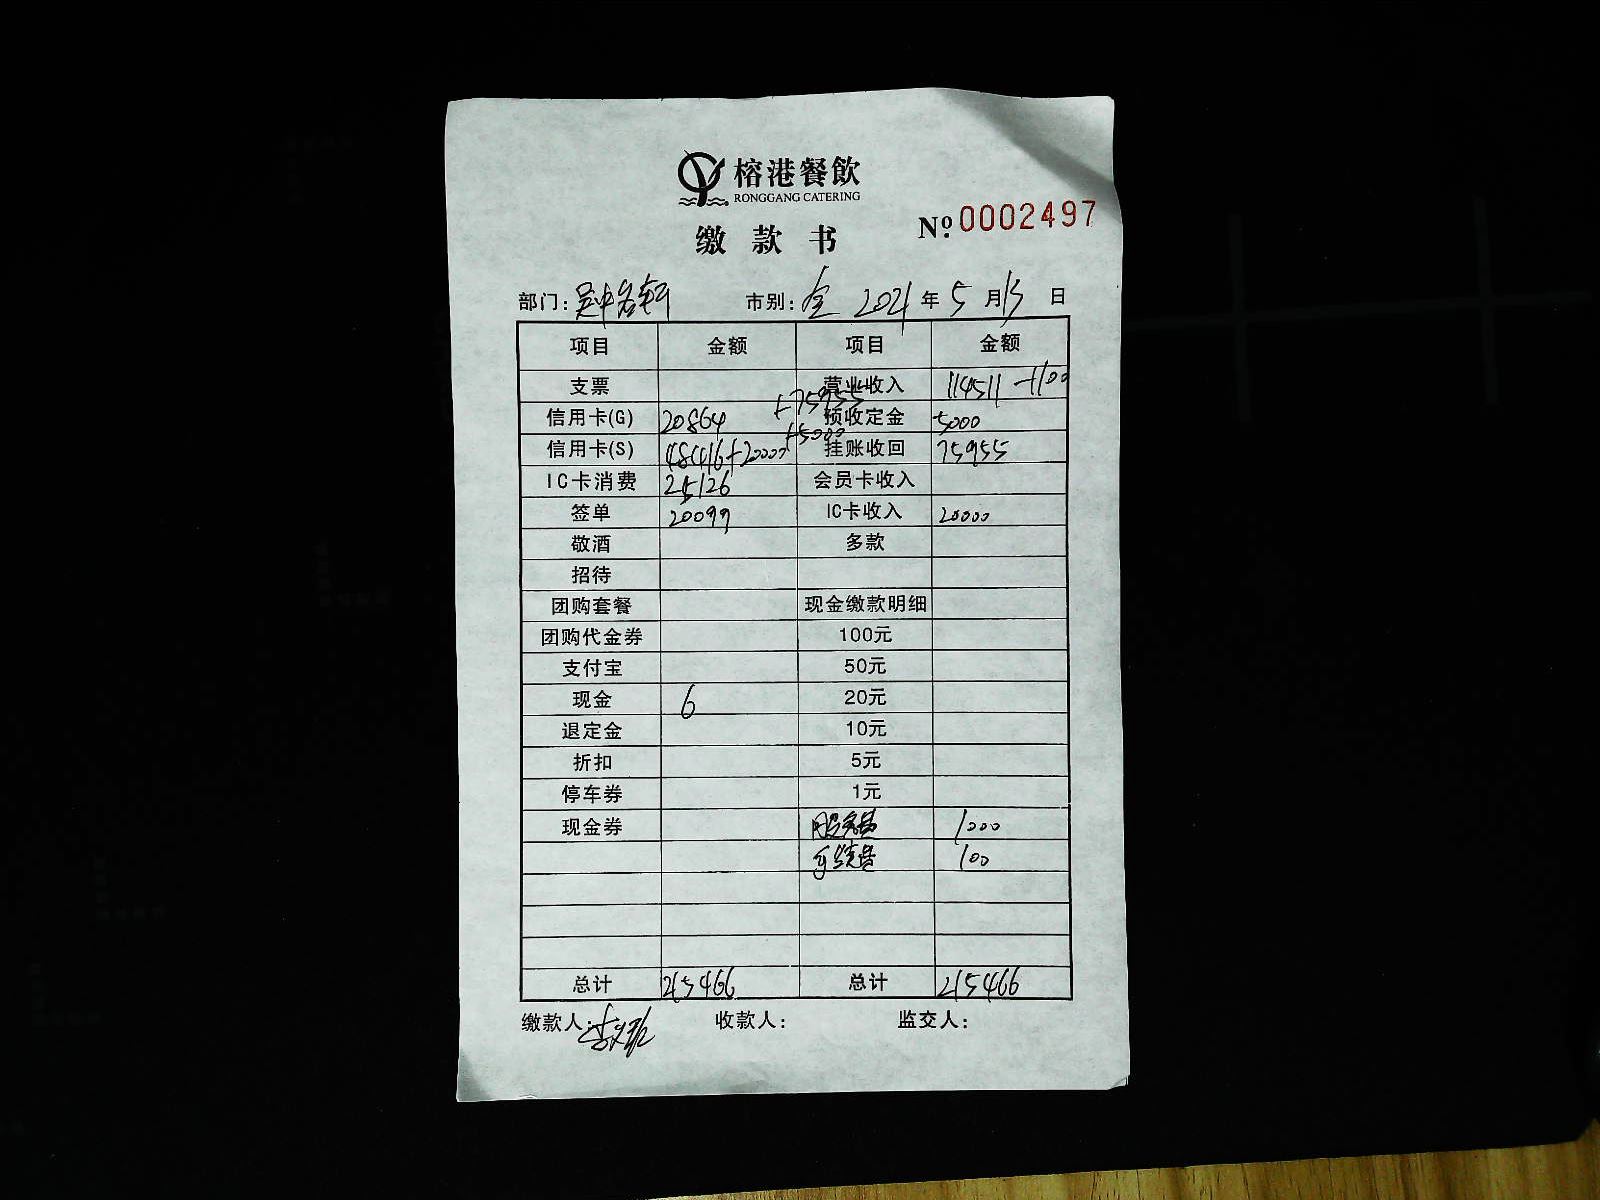 榕港餐飲
RONGGANG CATERING
缴款书
№ 0002497
部门: 吴中 市别: 全 2021年5月13日
项目 金额 项目 金额
支票 营业收入 114511-1100
信用卡(G) 20864 预收定金 5000
信用卡(S) 48416+20000+75955+5000 挂账收回 75955
IC卡消费 25126 会员卡收入
签单 20099 IC卡收入 20000
敬酒 多款
招待
团购套餐 现金缴款明细
团购代金券 100元
支付宝 50元
现金 6 20元
退定金 10元
折扣 5元
停车券 1元
现金券 服务费 1000
手续费 100
总计 215466 总计 215466
缴款人: 收款人: 监交人: